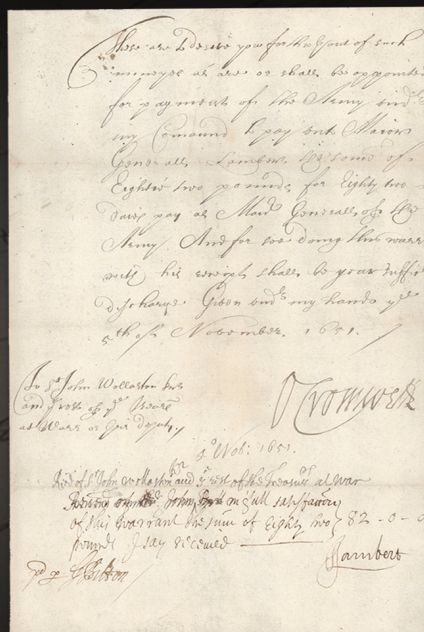 These are to desire you forthwth out of such
moneyes as are or shall be appointed
for payment of the Army undr
my Comand to pay unto Maior
Generall Lambert the some of
Eightie two pounds for Eighty two
dayes pay as Maior Generall of the
Army. And for soe doing this warr
with his receipt shall be your suffici
discharge Given undr my hand ye
5th of November. 1651.
To Sr John Wollaston
and rest of ye Trearers
at Warr or their Deputy
O Cromwell
Nob: 1651.
Recd of Sr John Wollaston and ye rest of the Treasurs at War
in full satisfaccon
of this warrant the sum of Eighty two 82-0-0
pounds I say received
JLambert
pd p